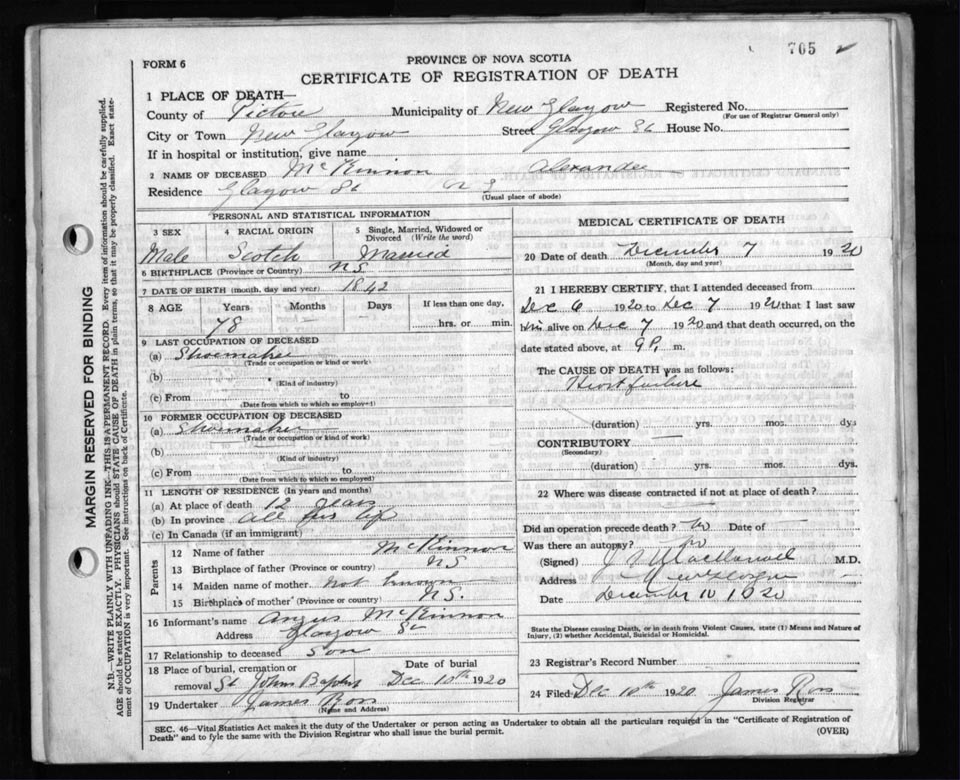 765
FORM 6
PROVINCE OF NOVA SCOTIA
CERTIFICATE OF REGISTRATION OF DEATH
1 PLACE OF DEATH—
County of Pictou Municipality of New Glasgow Registered No.
(For use of Registrar General only)
City or Town New Glasgow Street Glasgow St House No.
If in hospital or institution, give name
2 NAME OF DECEASED McKinnon Alexander
Residence Glasgow St N G
(Usual place of abode)
PERSONAL AND STATISTICAL INFORMATION
3 SEX 4 RACIAL ORIGIN 5 Single, Married, Widowed or Divorced (Write the word)
Male Scotch Married
6 BIRTHPLACE (Province or Country) N.S.
7 DATE OF BIRTH (month, day and year) 1842
8 AGE Years Months Days If less than one day,
78 hrs. or min.
9 LAST OCCUPATION OF DECEASED
(a) Shoemaker
(Trade or occupation or kind of work)
(b)
(Kind of industry)
(c) From to
(Date from which to which so employed)
10 FORMER OCCUPATION OF DECEASED
(a) Shoemaker
(Trade or occupation or kind of work)
(b)
(Kind of industry)
(c) From to
(Date from which to which so employed)
11 LENGTH OF RESIDENCE (In years and months)
(a) At place of death 12 years
(b) In province all his life
(c) In Canada (if an immigrant)
Parents
12 Name of father McKinnon
13 Birthplace of father (Province or country) NS
14 Maiden name of mother not known
15 Birthplace of mother (Province or country) N.S.
16 Informant's name Angus McKinnon
Address Glasgow St
17 Relationship to deceased Son
18 Place of burial, cremation or Date of burial
removal St Johns Baptist Dec 10th 1920
19 Undertaker James Ross
(Name and Address)
MEDICAL CERTIFICATE OF DEATH
20 Date of death December 7 1920
(Month, day and year)
21 I HEREBY CERTIFY, that I attended deceased from
Dec 6 1920 to Dec 7 1920 that I last saw
him alive on Dec 7 1920 and that death occurred, on the
date stated above, at 9 P. m.
The CAUSE OF DEATH was as follows:
Heart failure
(duration) yrs. mos. dys
CONTRIBUTORY
(Secondary)
(duration) yrs. mos. dys.
22 Where was disease contracted if not at place of death?
Did an operation precede death? No Date of
Was there an autopsy? No
(Signed) M.D.
Address New Glasgow
Date December 10 1920
State the Disease causing Death, or in death from Violent Causes, state (1) Means and Nature of
Injury, (2) whether Accidental, Suicidal or Homicidal.
23 Registrar's Record Number
24 Filed Dec 10th 1920 James Ross
Division Registrar
SEC. 46—Vital Statistics Act makes it the duty of the Undertaker or person acting as Undertaker to obtain all the particulars required in the "Certificate of Registration of
Death" and to fyle the same with the Division Registrar who shall issue the burial permit. (OVER)
MARGIN RESERVED FOR BINDING
N.B.—WRITE PLAINLY WITH UNFADING INK—THIS IS A PERMANENT RECORD. Every item of information should be carefully supplied.
AGE should be stated EXACTLY. PHYSICIANS should STATE CAUSE OF DEATH in plain terms, so that it may be properly classified. Exact statement
of OCCUPATION is very important. See instructions on back of Certificate.